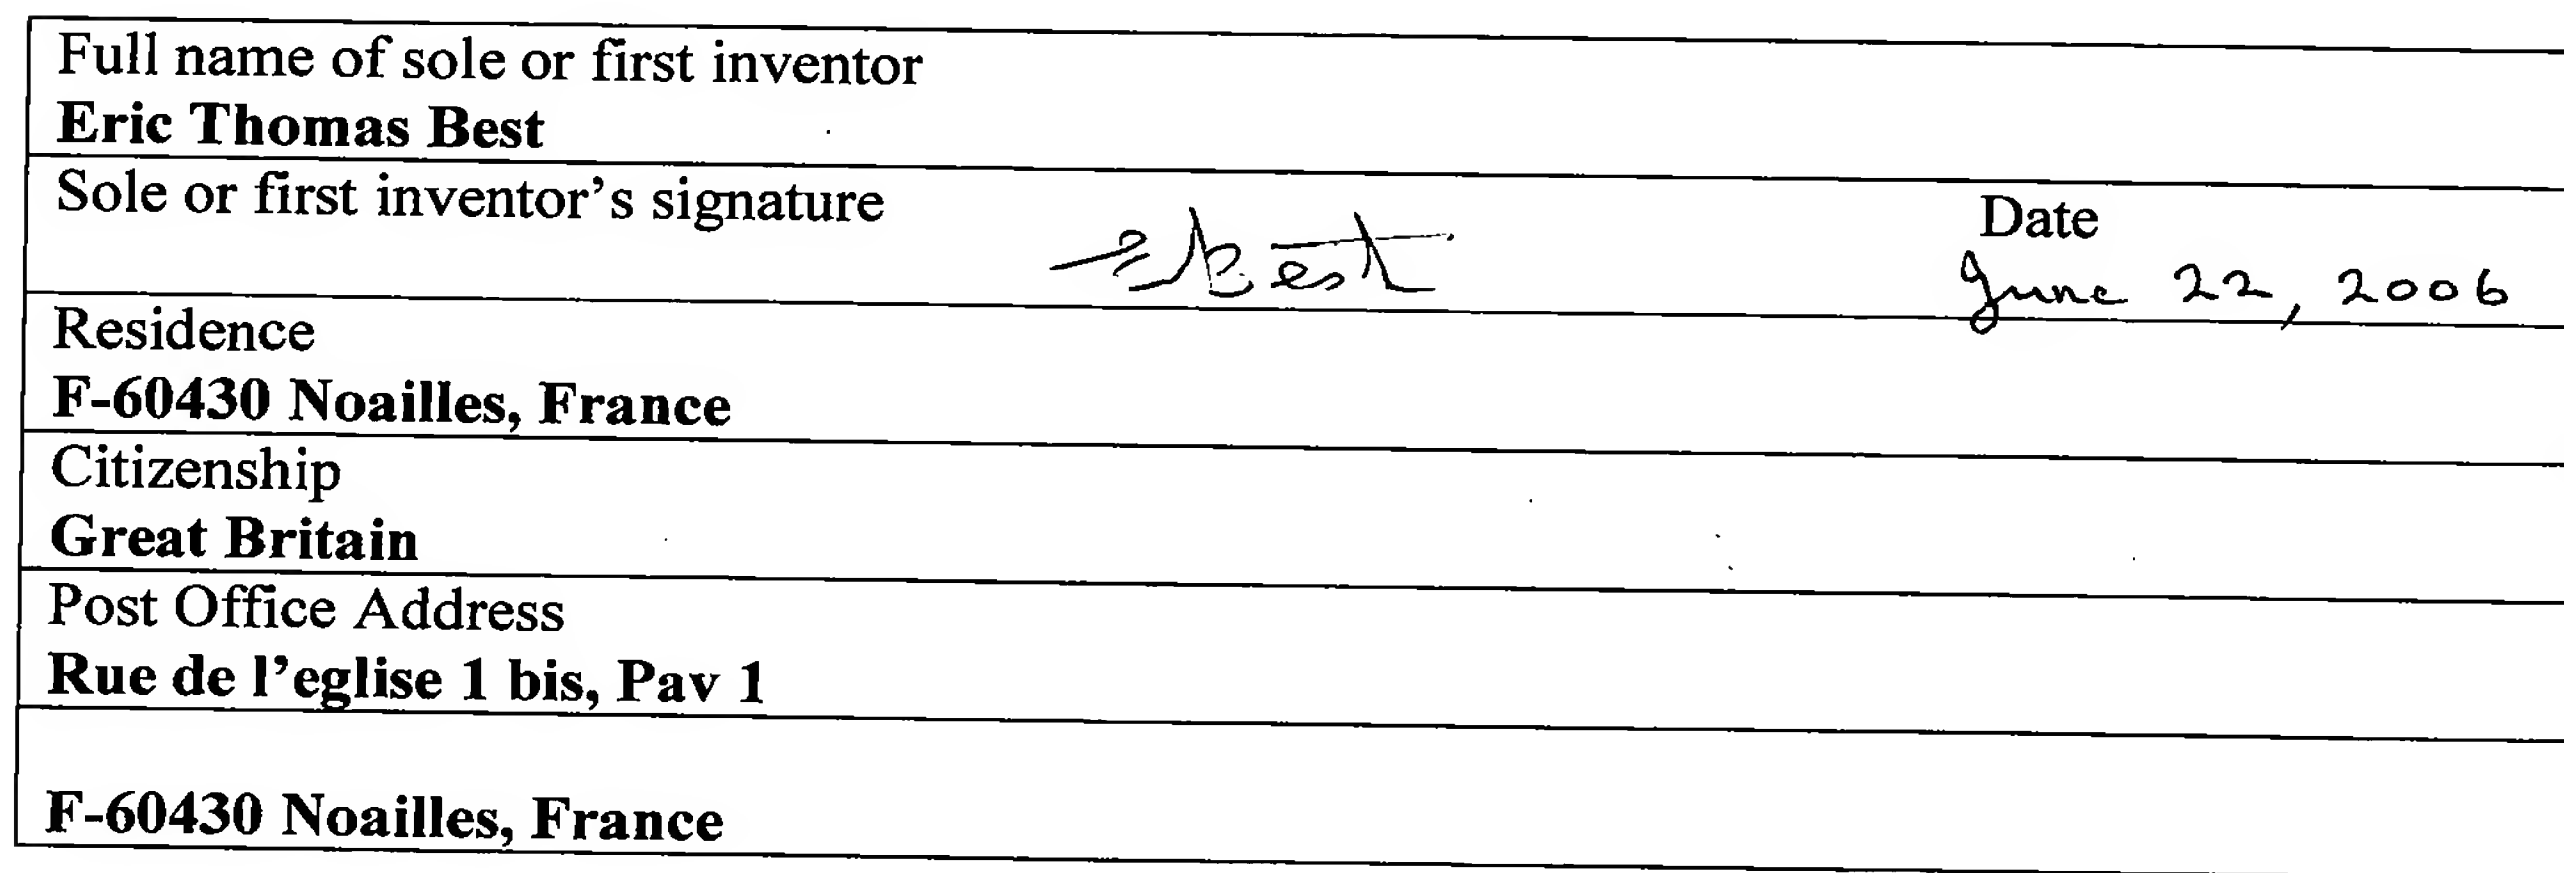 Full name of sole or first inventor
Eric Thomas Best
Sole or first inventor's signature
Best
Date
June 22, 2006
Residence
F-60430 Noailles, France
Citizenship
Great Britain
Post Office Address
Rue de l'eglise 1 bis, Pav 1
F-60430 Noailles, France